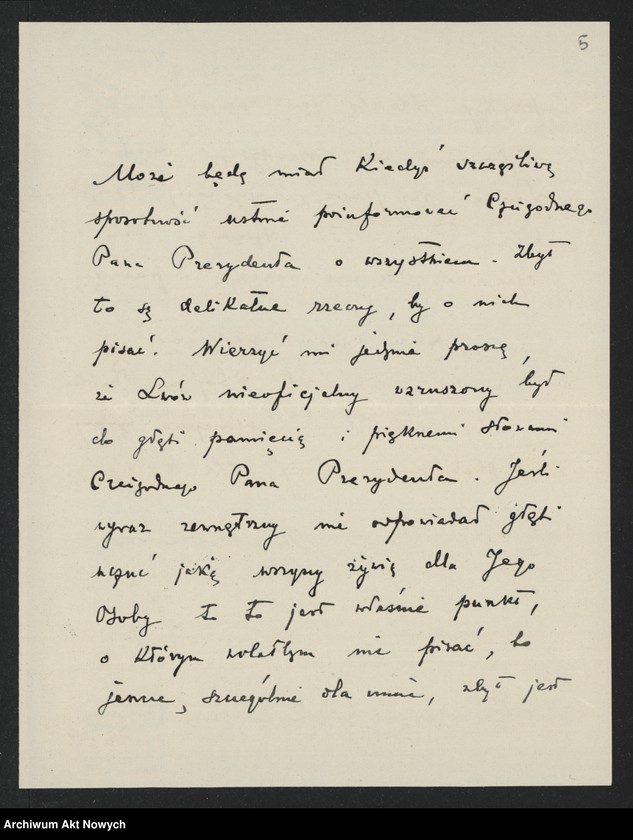 5
Może będę miał kiedyś szczęśliwą
sposobność ustnie poinformować Czcigodnego
Pana Prezydenta o wszystkiem. Zbyt
to są delikatne rzeczy, by o nich
pisać. Wierzyć mi jedynie proszę,
że Lwów nieoficjalny wzruszony był
do głębi pamięcią i pięknemi słowami
Czcigodnego Pana Prezydenta. Jeśli
wyraz zewnętrzny nie odpowiadał głębi
uczuć jaką wszyscy żywią dla Jego
Osoby to to jest właśnie punkt,
o którym wolałbym nie pisać, bo
jeszcze, szczególnie dla mnie, zbyt jest
Archiwum Akt Nowych